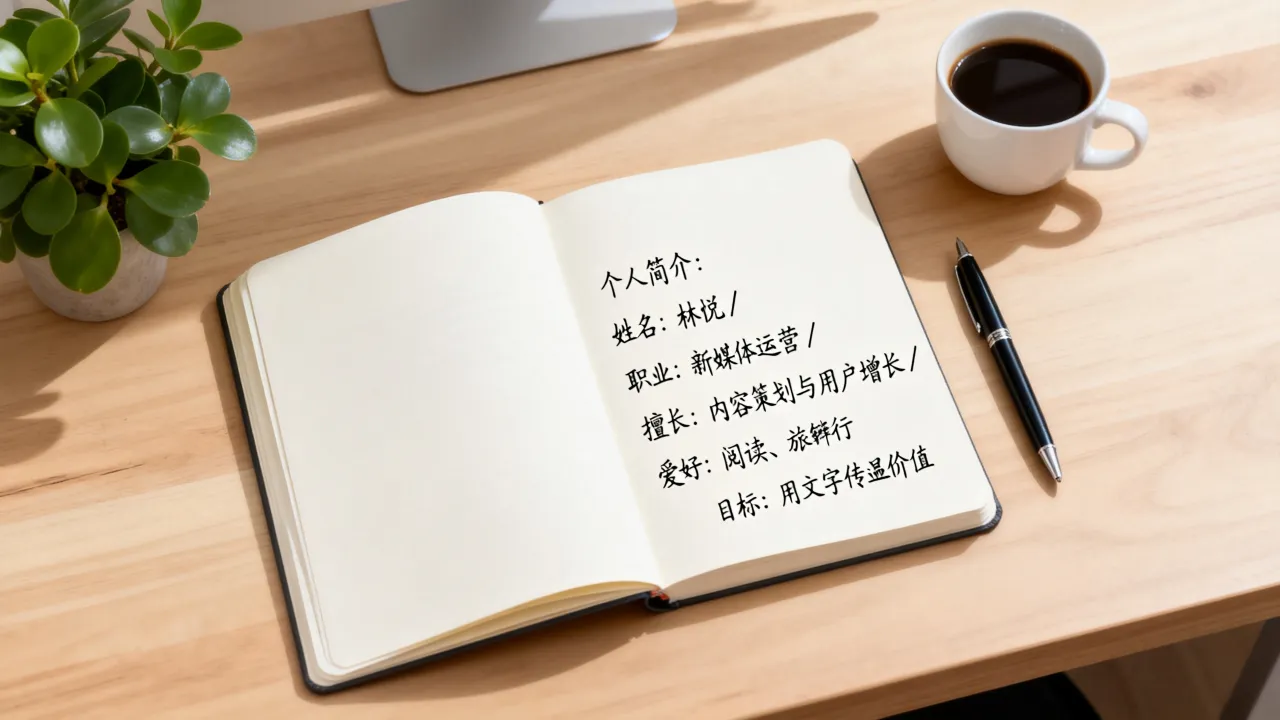 个人简介：
姓名：林悦 /
职业：新媒体运营 /
擅长：内容策划与用户增长 /
爱好：阅读、旅行
目标：用文字传温价值